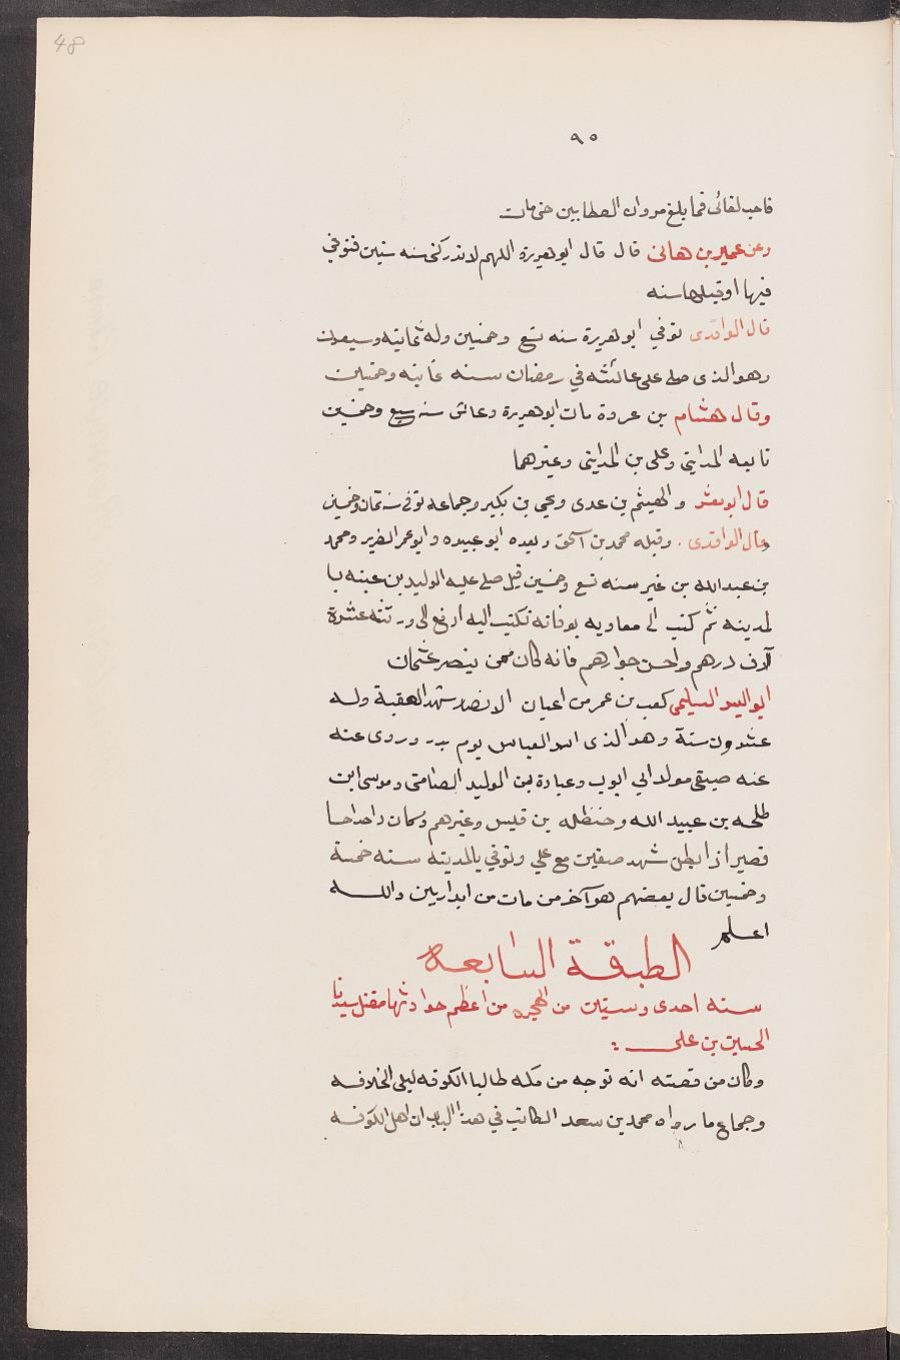 48
٩٥
فاحب لقائى فما بلغ مروان القطابين حتى مات
وعن عمير بن هانى قال قال ابو هريرة اللهم لا تدركنى سنه ستين فتوفي
فيها او قبلها سنه
قال الواقدى توفي ابو هريرة سنه تسع وخمسين وله ثمانيه وسبعون
وهو الذى صلى على عائشه في رمضان سنه ثمانيه وخمسين
وقال هشام بن عروة مات ابو هريرة وعائش سنه سبع وخمسين
تابعه المداينى وعلى بن المداينى وغيرهما
قال ابو معشر والهيثم بن عدى ويحيى بن بكير وجماعه توفى سنه ثمان وخمسين
قال الواقدى وقبله محمد بن اسحق وبعده ابو عبيده وابو عمر الضرير ومحمد
بن عبد الله بن نمير سنه تسع وخمسين قيل صلى عليه الوليد بن عتبه با
لمدينه ثم كتب الى معاويه بوفاته فكتب اليه ادفع الى ورثته عشرة
آلاف درهم واحسن جوارهم فانه كان ممن ينصر عثمان
ابو اليسر السليمى كعب بن عمر من اعيان الانصار شهد العقبة وله
عشرون سنة وهو الذى اسر العباس يوم بدر وروى عنه
عنه صيفى مولى ابي ايوب وعبادة بن الوليد الصامتى وموسى ابن
طلحه بن عبيد الله وحنظله بن قيس وغيرهم وكان دحداحا
قصير اذا بطن شهد صفين مع علي وتوفي بالمدينه سنه خمسة
وخمسين قال بعضهم هو آخر من مات من البدريين والله
اعلم
الطبقة السابعه
سنه احدى وستين من الهجره من اعظم حوادثها مقتل سيدنا
الحسين بن على
وكان من قصته انه توجه من مكه طالبا الكوفه ليلى الخلافه
وجماع ما رواه محمد بن سعد الكاتب في هذا الباب ان اهل الكوفه